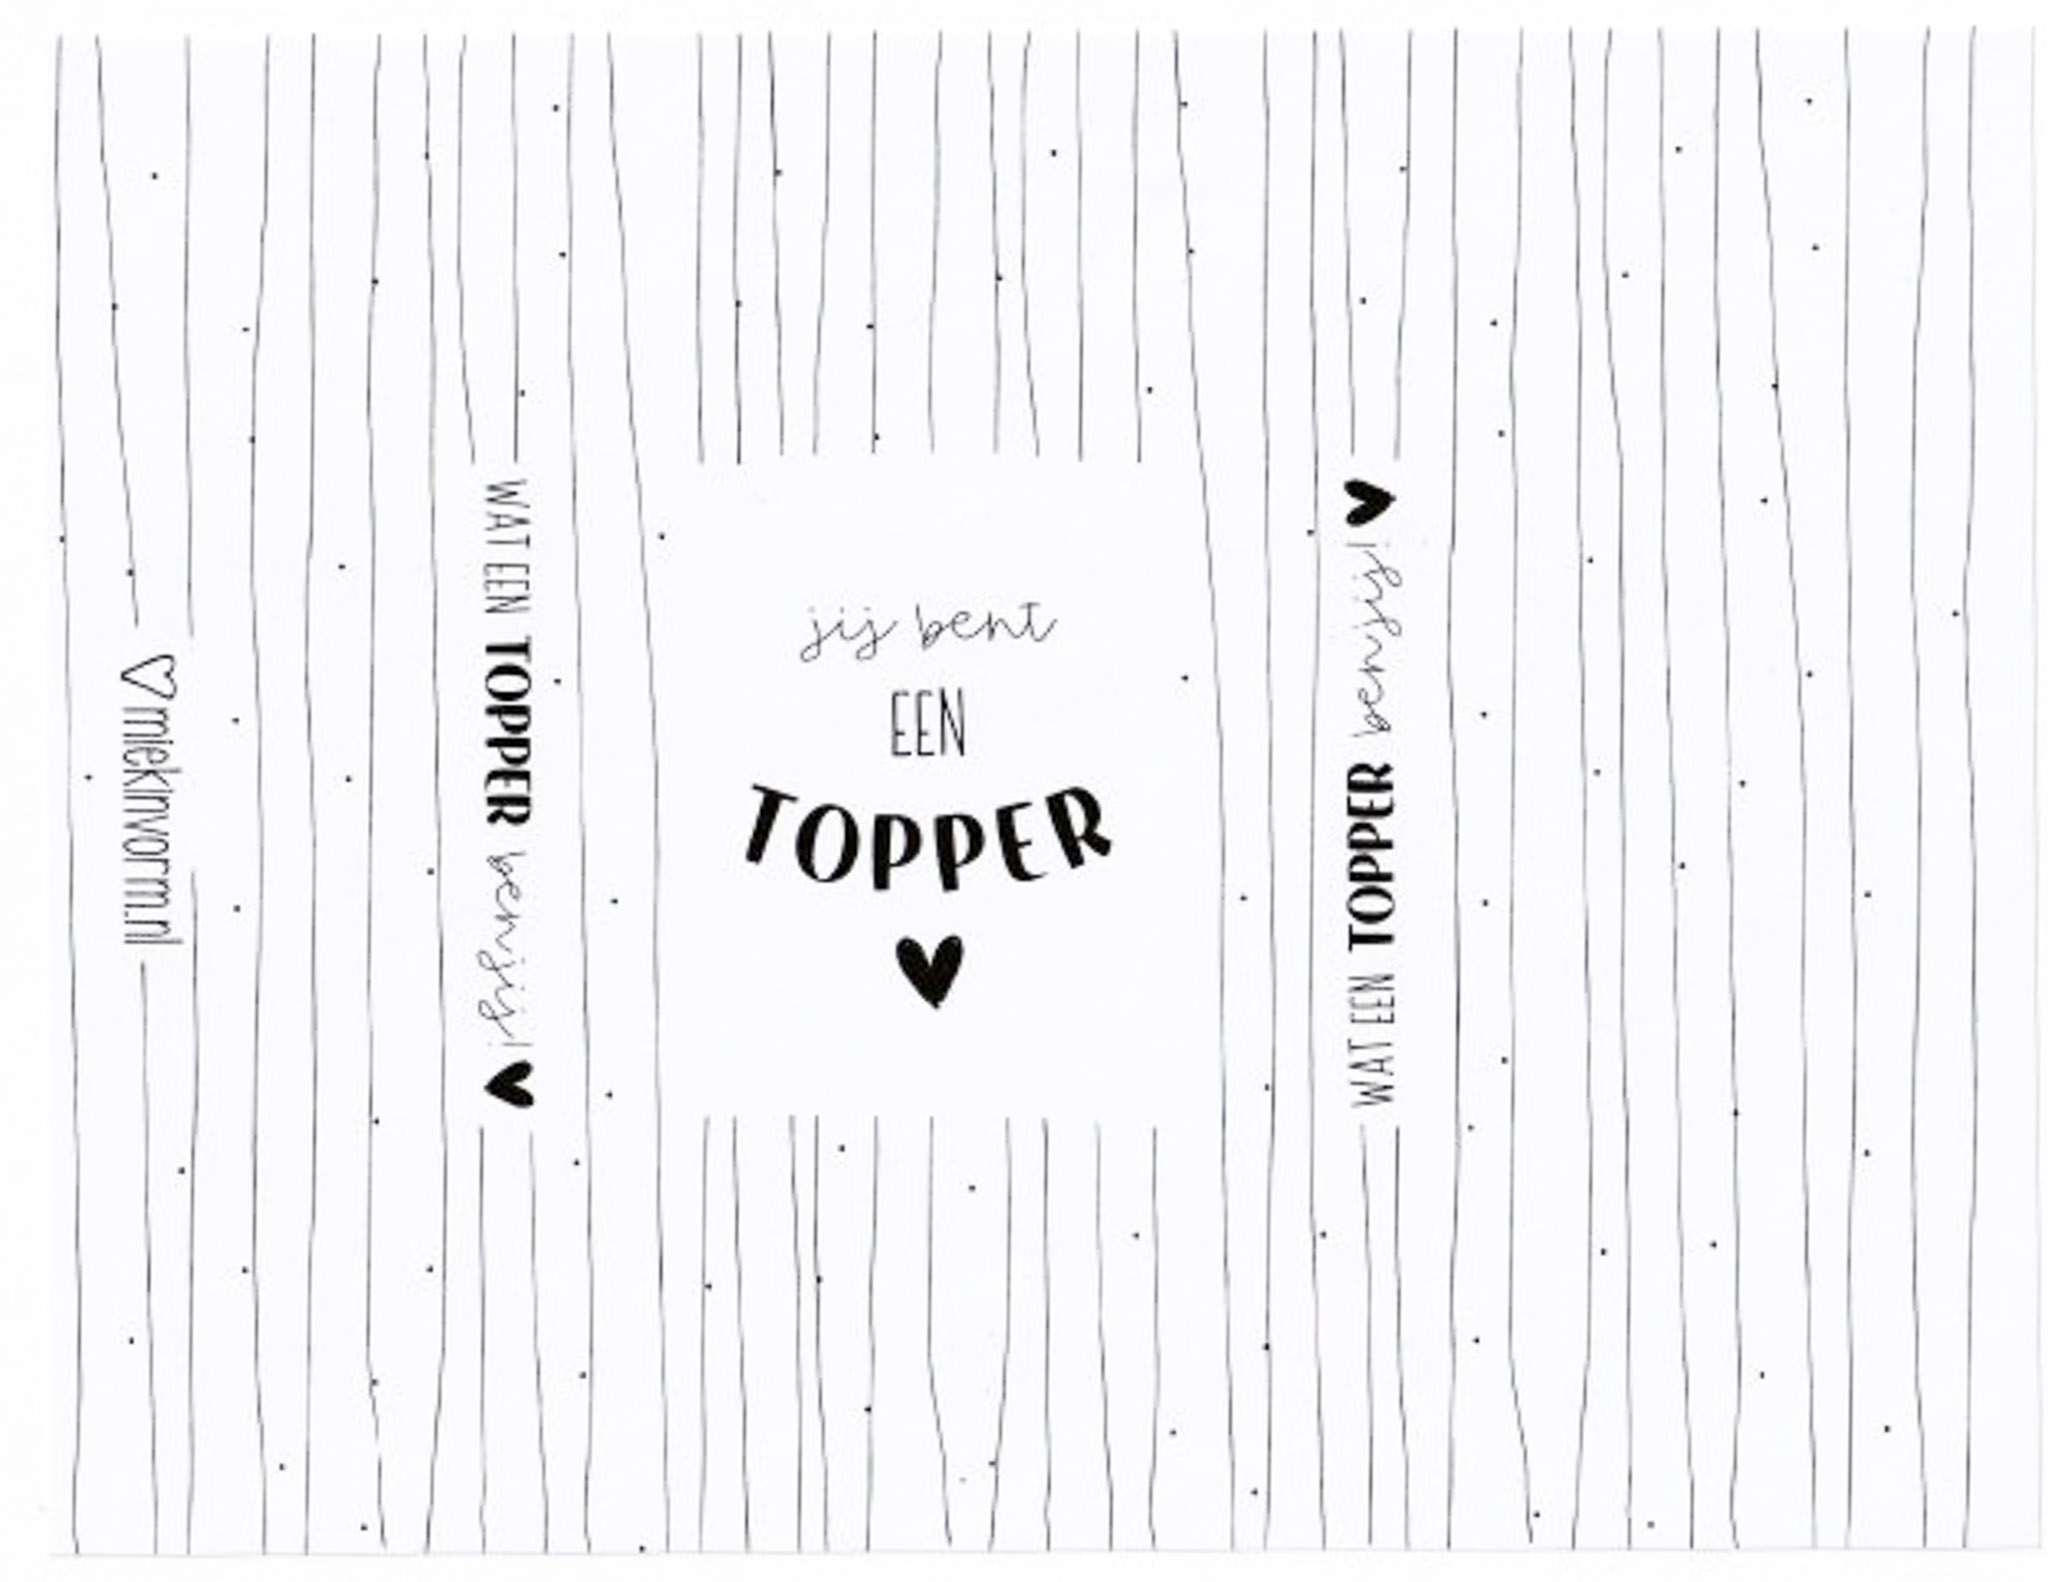 miekinvorm.nl
WAT EEN TOPPER ben jij!
jij bent
EEN
TOPPER
WAT EEN TOPPER ben jij!